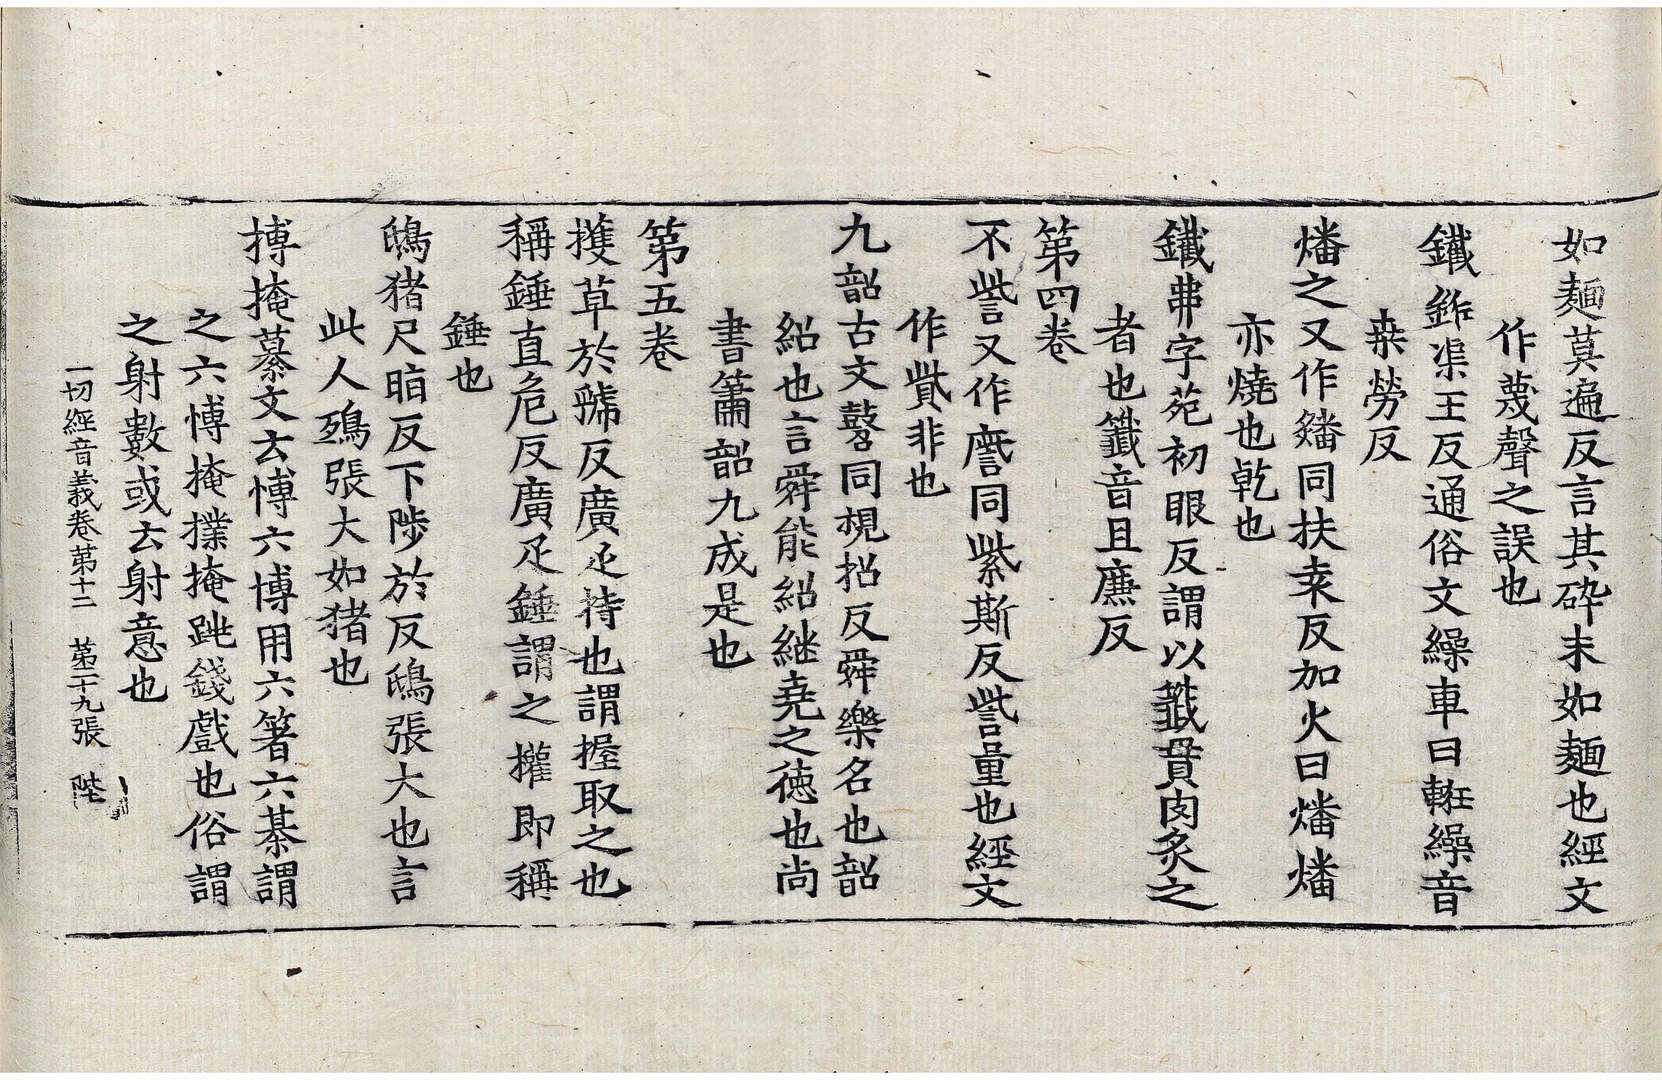 如麺莫遍反言其碎末如麺也經文
作蔑聲之誤也
鐵鉾渠王反通俗文繰車曰軖繰音
桒勞反
燔之又作䊩同扶桒反加火曰燔燔
亦燒也乾也
鐵丳字苑初眼反謂以籤貫肉炙之
者也籤音且廉反
第四卷
不訾又作𧧼同紫斯反訾量也經文
作貲非也
九韶古文㲈同視招反舜樂名也韶
紹也言舜能紹継堯之德也尚
書簫韶九成是也
第五卷
擭草於虢反廣疋持也謂握取之也
稱錘直危反廣疋錘謂之權即稱
錘也
鴟猪尺脂反下陟於反鴟張大也言
此人殦張大如猪也
搏掩綦文云博六博用六箸六棊謂
之六博掩撲掩跳錢戲也俗謂
之射數或云射意也
一切經音義卷第十二 第二十九張 陛